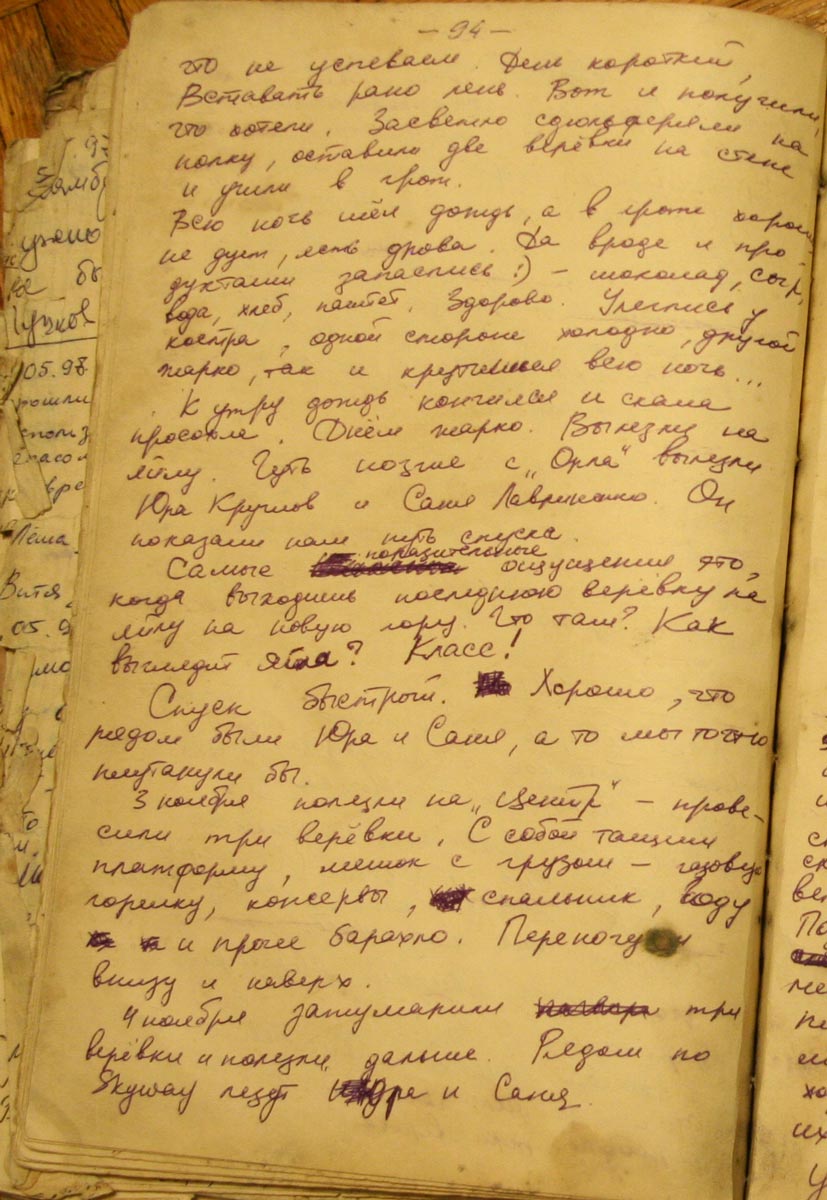 - 94 -
что не успеваем. День короткий,
Вставать рано лень. Вот и получили,
что хотели. Засветло сдюльферяли на
полку, оставили две верёвки на стене
и ушли в грот.
Всю ночь шёл дождь, а в гроте хорошо
не дует, есть дрова. Да вроде и про-
дуктами запаслись :) - шоколад, сыр,
вода, хлеб, паштет. Здорово. Улеглись у
костра, одной стороне холодно, другой
жарко, так и крутишься всю ночь...
К утру дождь кончился и скала
просохла. Днём жарко. Вылезли на
яйлу. Чуть позже с „Орла" вылезли
Юра Круглов и Саня Лавриненко. Он
показали нам путь спуска.
Самые поразительные ощущения это,
когда выходишь последнюю верёвку на
яйлу на новую гору. Что там? Как
выглядит яйла? Класс!
Спуск быстрый. Хорошо, что
рядом были Юра и Саня, а то мы точно
плутанули бы.
3 ноября полезли на „Центр" - прове-
сили три верёвки. С собой тащим
платформу, мешок с грузом - газовую
горелку, консервы, спальник, воду
и проче барахло. Переночуем
внизу и наверх.
4 ноября зажумарили три
верёвки и полезли дальше. Рядом по
Skyway лезут Юра и Саня.
5
.97
ушли
не бы
Гудков
05.98
Лёша
Витя,
05.9